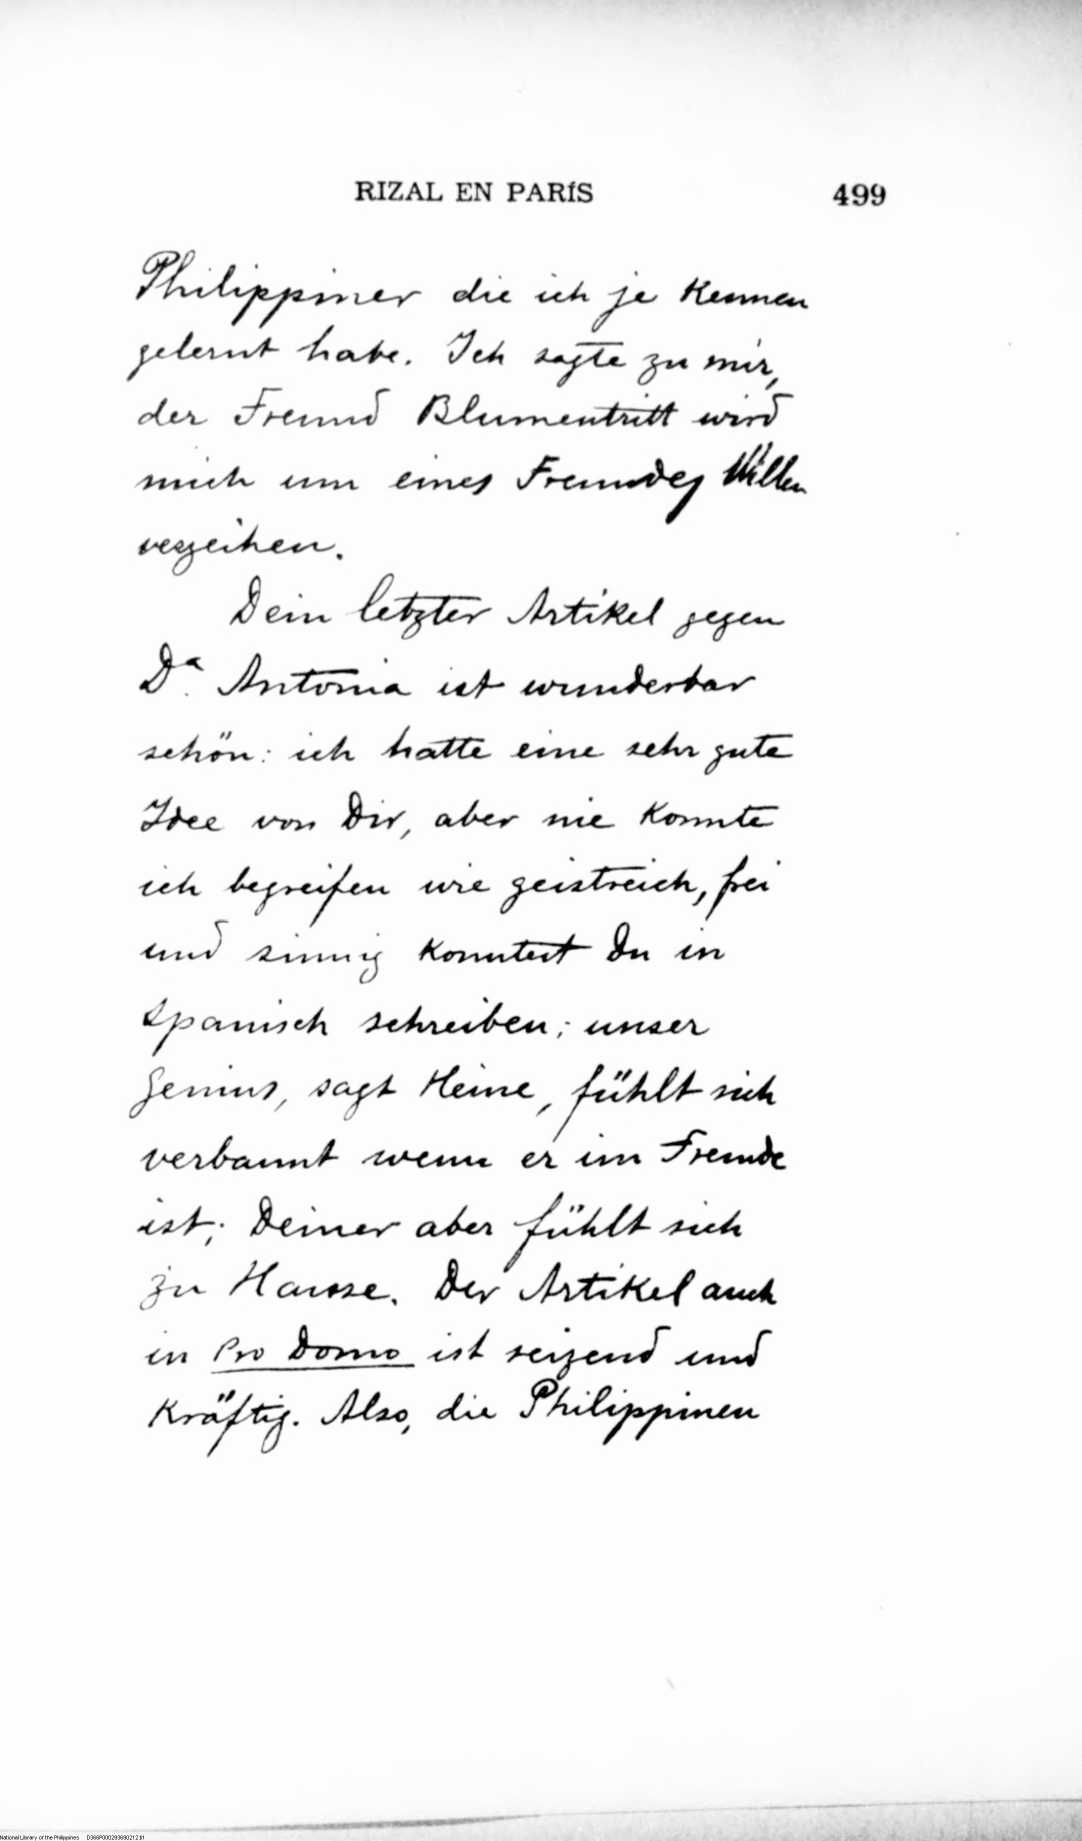 RIZAL EN PARÍS 499
Philippiner die ich je kennen
gelernt habe. Ich sagte zu mir,
der Freund Blumentritt wird
mich um eines Freundes Willen
verzeihen.
Dein letzter Artikel gegen
Dª. Antonia ist wunderbar
schön: ich hatte eine sehr gute
Idee von Dir, aber nie konnte
ich begreifen wie geistreich, frei
und sinnig konntest Du in
Spanisch schreiben; unser
Genius, sagt Heine, fühlt sich
verbannt wenn er im Fremde
ist; Deiner aber fühlt sich
zu Hause. Der Artikel auch
in Pro Domo ist reizend und
kräftig. Also, die Philippinen
National Library of the Philippines